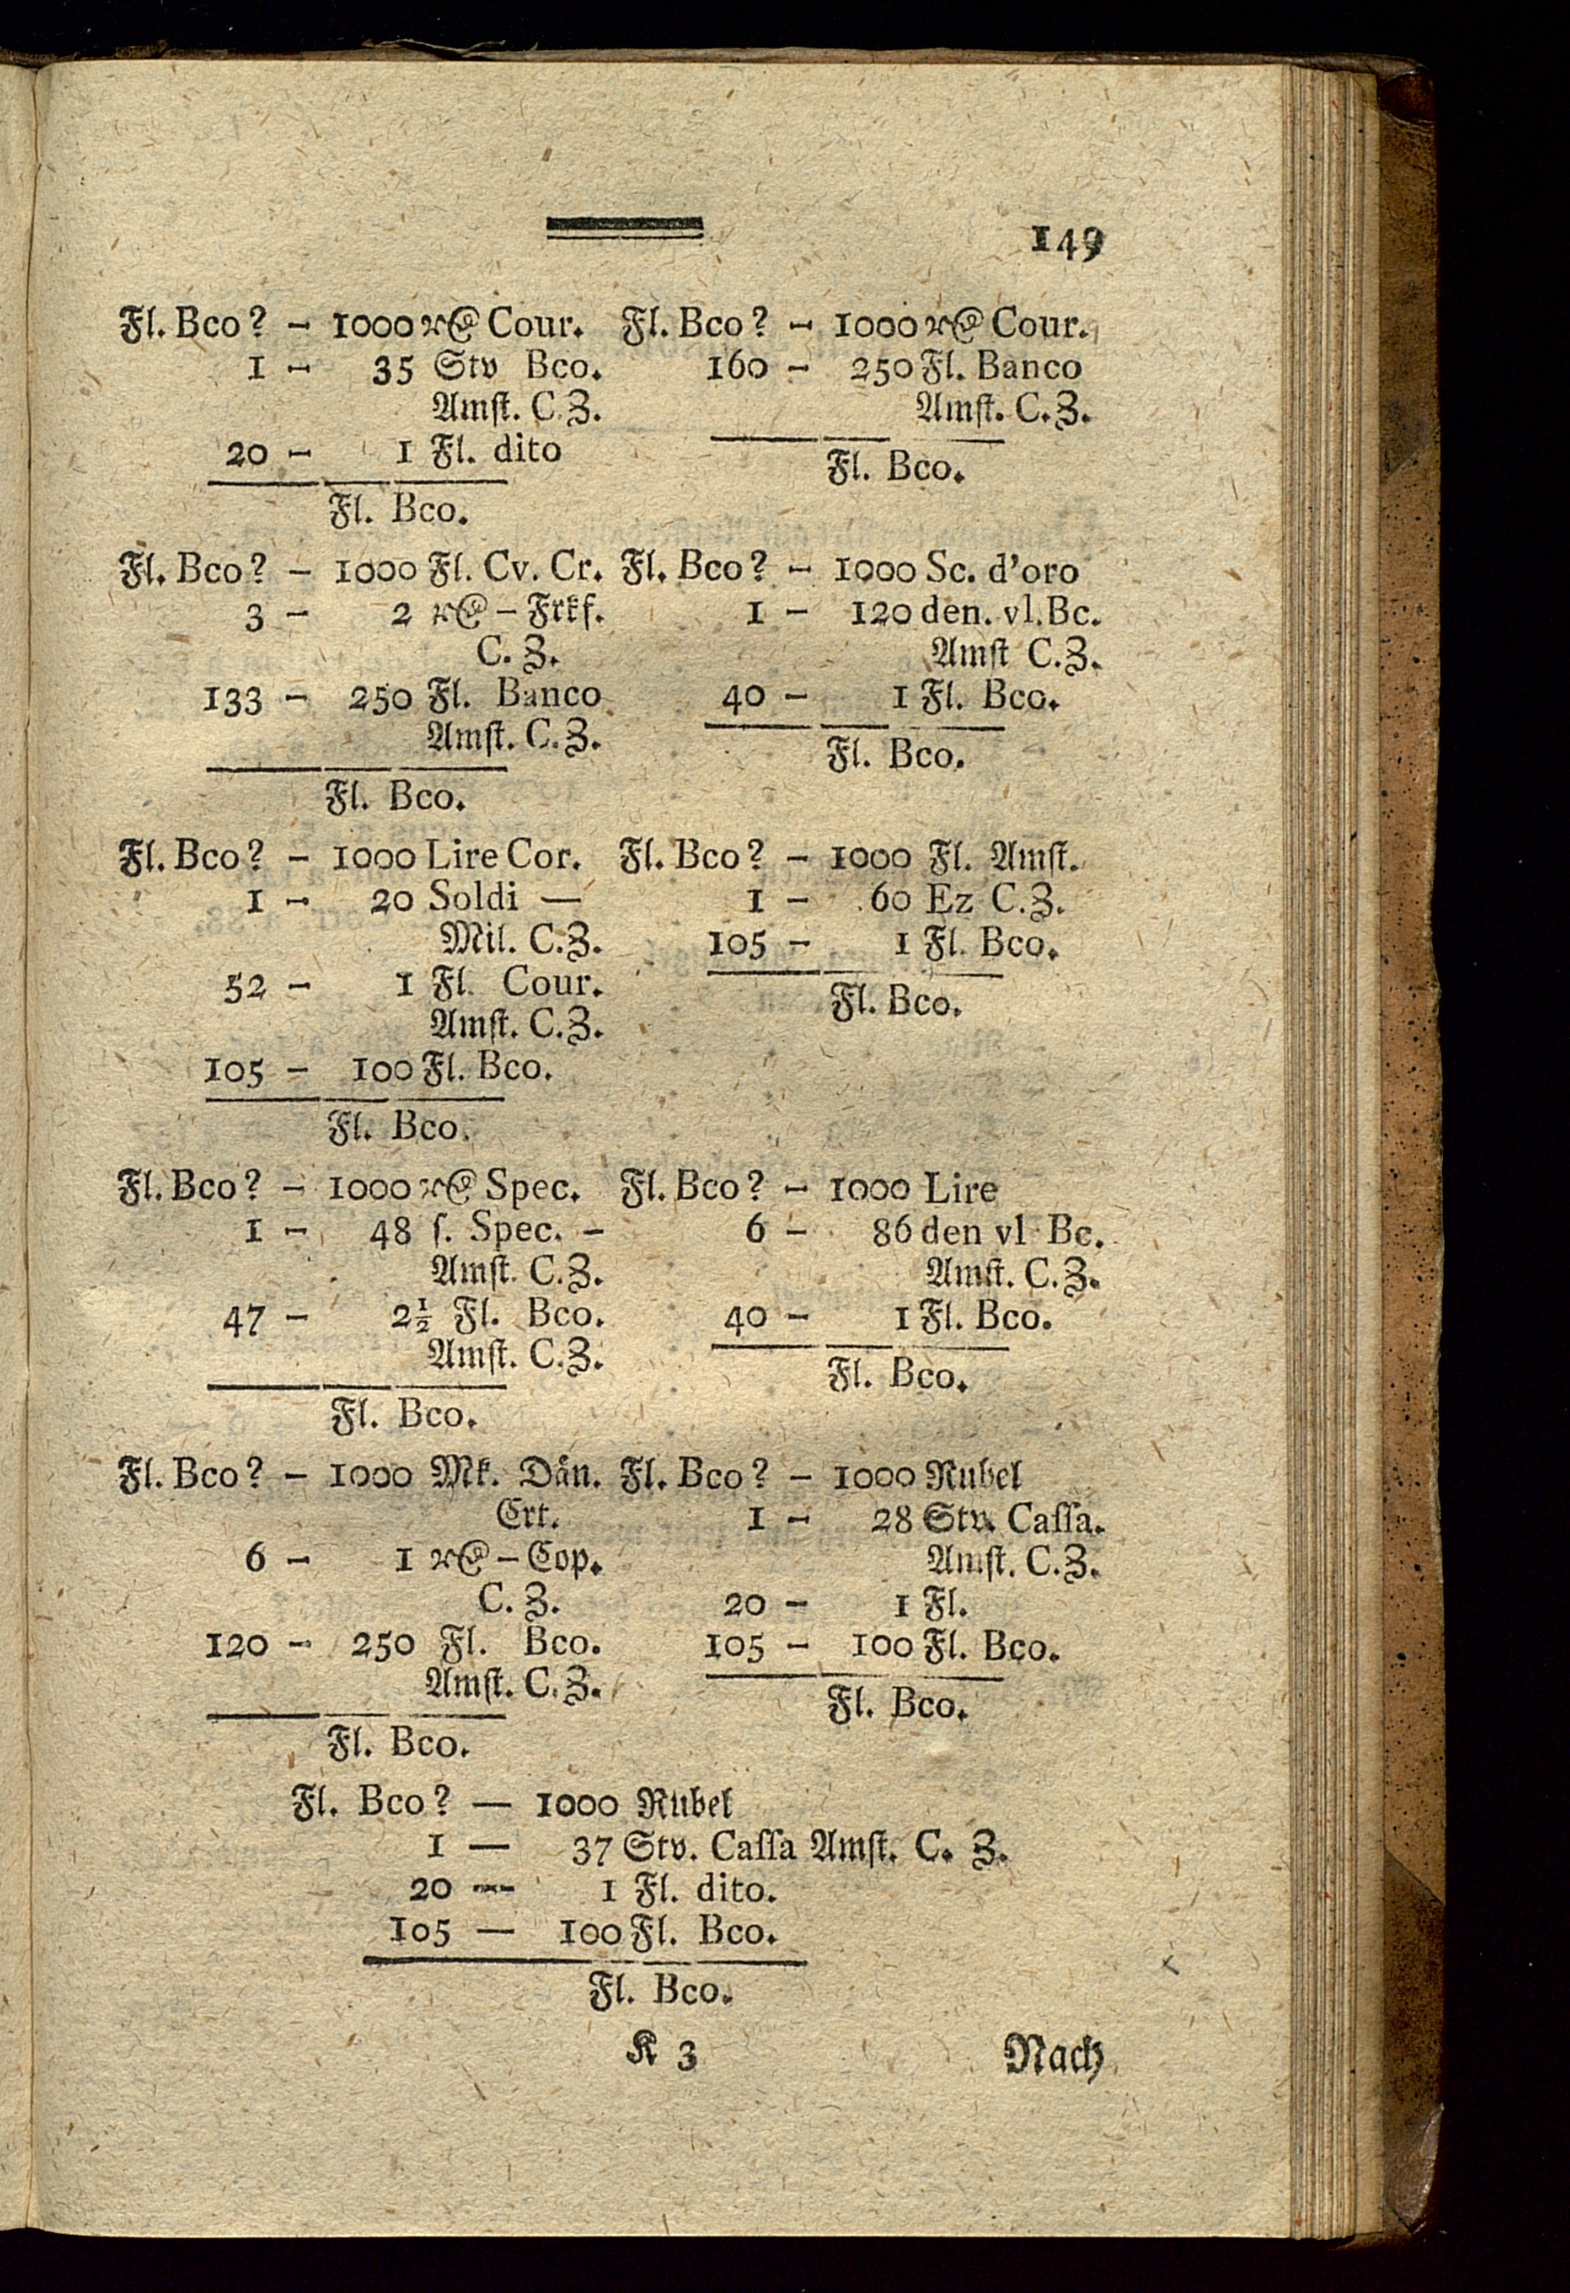 149
Fl. Bco? – 1000 r@ Cour.
1 – 35 Stv Bco.
Amst. C.Z.
20 – 1 Fl. dito
Fl. Bco.
Fl. Bco? – 1000 r@ Cour.
160 – 250 Fl. Banco
Amst. C.Z.
Fl. Bco.
Fl. Bco? – 1000 Fl. Cv. Cr.
3 – 2 r@ – Frkf.
C. Z.
133 – 250 Fl. Banco
Amst. C.Z.
Fl. Bco.
Fl. Bco? – 1000 Sc. d'oro
1 – 120 den. vl. Bc.
Amst C.Z.
40 – 1 Fl. Bco.
Fl. Bco.
Fl. Bco? – 1000 Lire Cor.
1 – 20 Soldi —
Mil. C.Z.
52 – 1 Fl. Cour.
Amst. C.Z.
105 – 100 Fl. Bco.
Fl. Bco.
Fl. Bco? – 1000 Fl. Amst.
1 – 60 Ez C.Z.
105 – 1 Fl. Bco.
Fl. Bco.
Fl. Bco? – 1000 r@ Spec.
1 – 48 ſ. Spec. –
Amst. C.Z.
47 – 2½ Fl. Bco.
Amst. C.Z.
Fl. Bco.
Fl. Bco? – 1000 Lire
6 – 86 den vl Bc.
Amst. C.Z.
40 – 1 Fl. Bco.
Fl. Bco.
Fl. Bco? – 1000 Mk. Dän.
Crt.
6 – 1 r@ – Cop.
C. Z.
120 – 250 Fl. Bco.
Amst. C.Z.
Fl. Bco.
Fl. Bco? – 1000 Rubel
1 – 28 Stv. Caſſa.
Amst. C.Z.
20 – 1 Fl.
105 – 100 Fl. Bco.
Fl. Bco.
Fl. Bco? — 1000 Rubel
1 — 37 Stv. Caſſa Amst. C. Z.
20 — 1 Fl. dito.
105 — 100 Fl. Bco.
Fl. Bco.
K 3 Nach